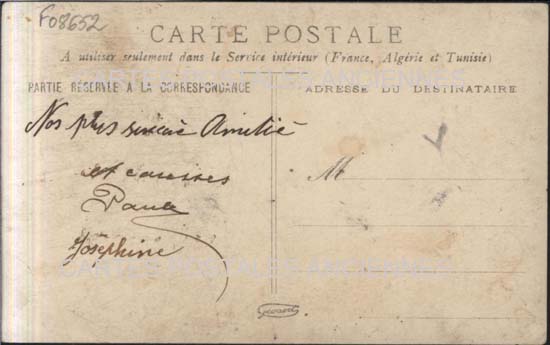 F08652
CARTE POSTALE
A utiliser seulement dans le Service intérieur (France, Algérie et Tunisie)
CARTES POSTALES ANCIENNES
PARTIE RÉSERVÉE A LA CORRESPONDANCE
ADRESSE DU DESTINATAIRE
Nos plus sincère Amitié
et caresses
M
Joséphine
CARTES POSTALES ANCIENNES